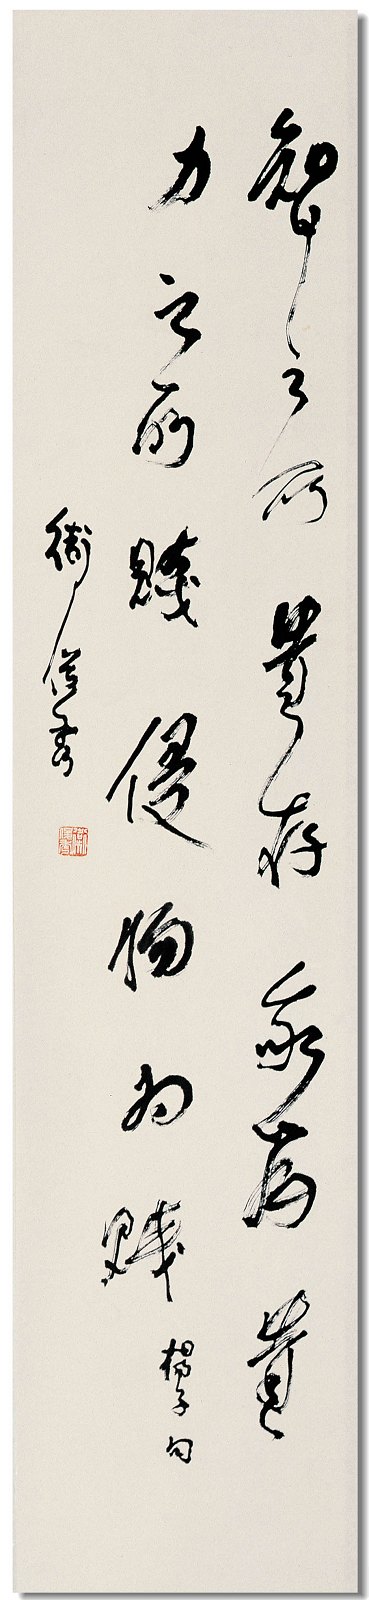 智之所貴存我為貴
力之所賤侵物為賤 楊子句
衛俊秀